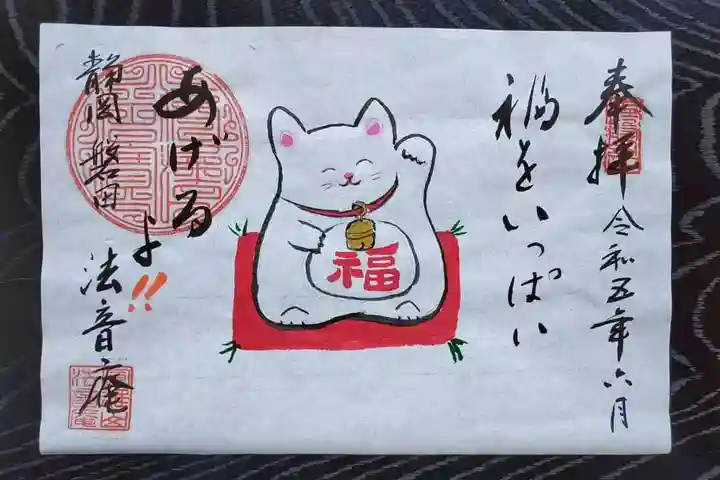 奉拝 令和五年六月
福をいっぱい
福
あげるよ!!
静岡 磐田 法音庵